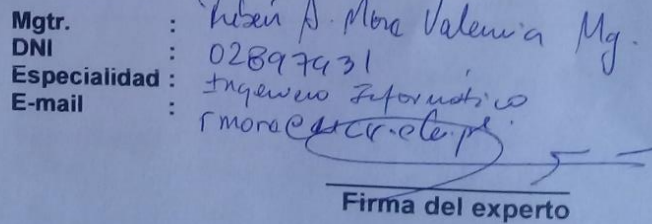 Mgtr. : Rubén A. Mora Valencia Mg.
DNI : 02897931
Especialidad : Ingeniero Informático
E-mail :
Firma del experto